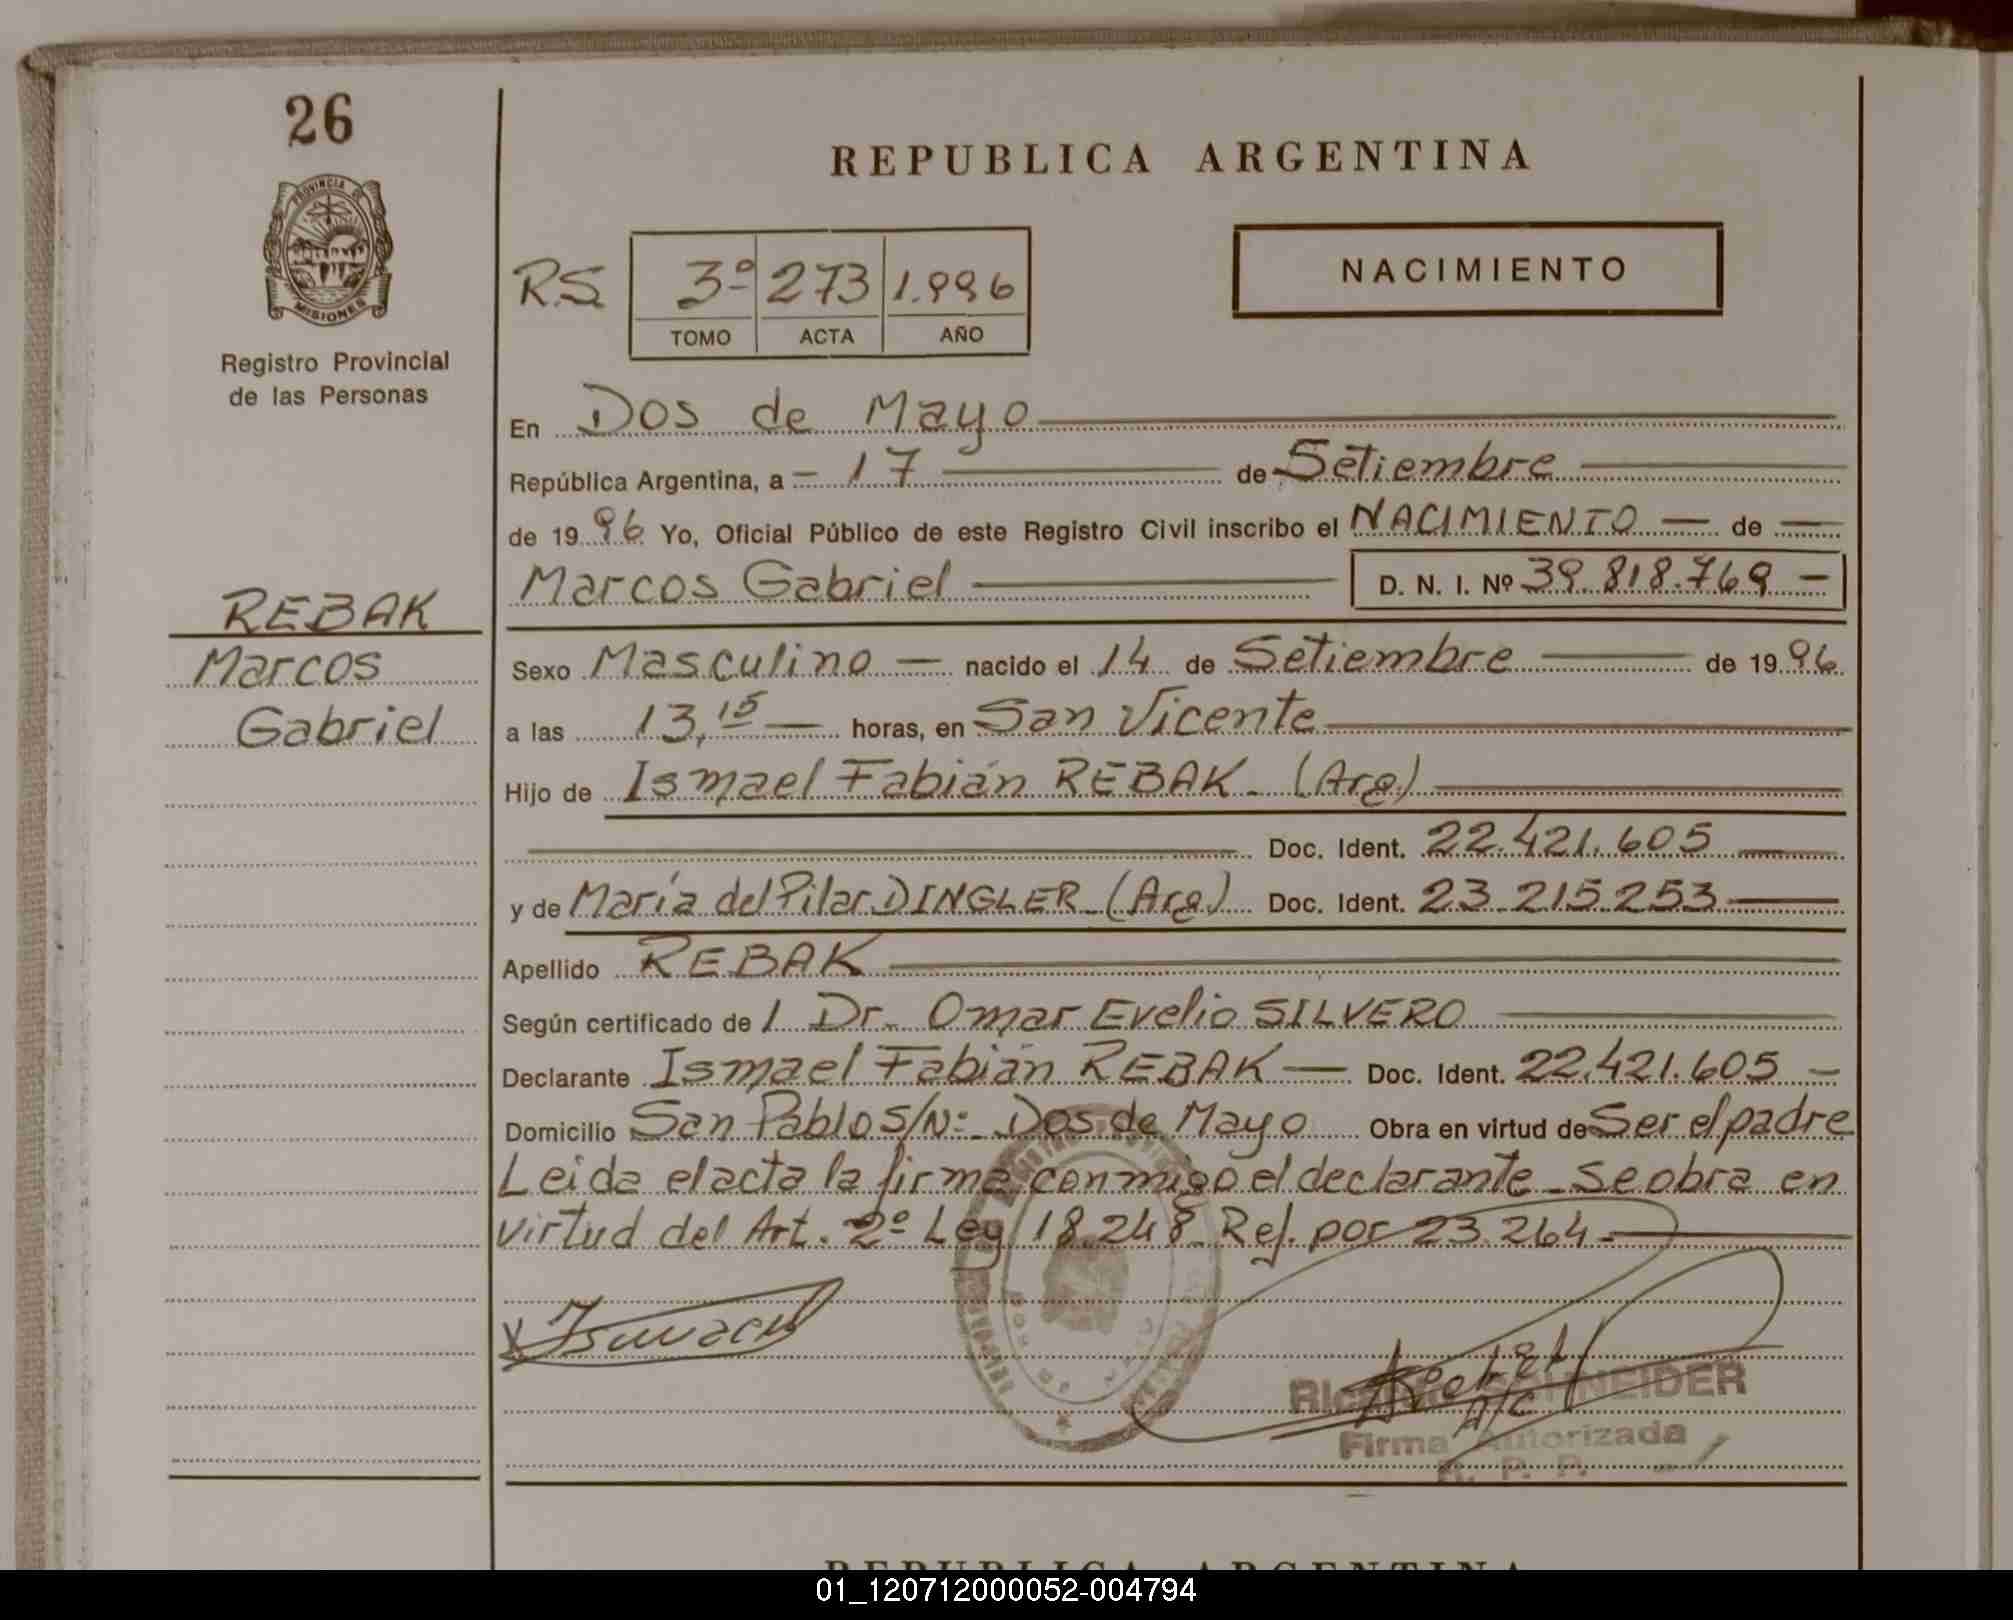 26
PROVINCIA DE
MISIONES
Registro Provincial
de las Personas
REPUBLICA ARGENTINA
R.S. 3º 273 1.996
TOMO ACTA AÑO
NACIMIENTO
En Dos de Mayo
República Argentina, a - 17 de Setiembre
de 1996 Yo, Oficial Público de este Registro Civil inscribo el NACIMIENTO - de -
Marcos Gabriel D. N. I. Nº 39.818.769 -
REBAK
Marcos
Gabriel
Sexo Masculino - nacido el 14 de Setiembre de 1996
a las 13,15 horas, en San Vicente
Hijo de Ismael Fabián REBAK - (Arg)
Doc. Ident. 22.421.605
y de María del Pilar DINGLER - (Arg) Doc. Ident. 23.215.253
Apellido REBAK
Según certificado de / Dr. Omar Evelio SILVERO
Declarante Ismael Fabián REBAK - Doc. Ident. 22.421.605 -
Domicilio San Pablo S/Nº - Dos de Mayo Obra en virtud de Ser el padre
Leida el acta la firma conmigo el declarante - Se obra en
virtud del Art. 2º Ley 18.248 Ref. por 23.264 -
x Ismael
SCHNEIDER
Firma Autorizada
R. P. P.
REPUBLICA ARGENTINA
01_120712000052-004794